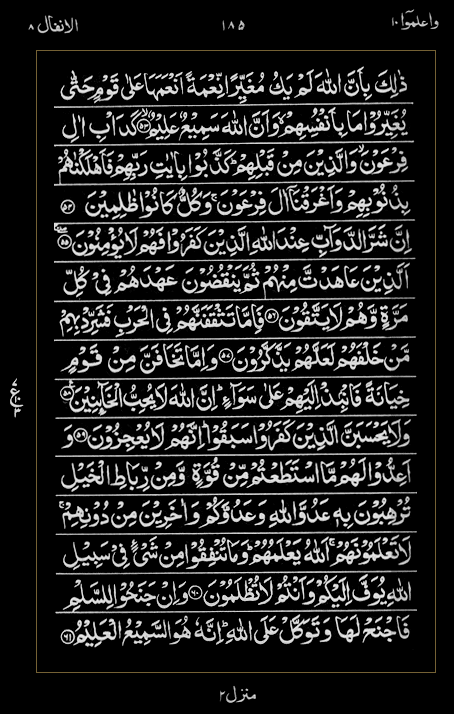 واعلموا ١٠
١٨٥
الانفال ٨
ذٰلِكَ بِاَنَّ اللّٰهَ لَمْ يَكُ مُغَيِّرًا نِّعْمَةً اَنْعَمَهَا عَلٰى قَوْمٍ حَتّٰى
يُغَيِّرُوْا مَا بِاَنْفُسِهِمْ ۙ وَاَنَّ اللّٰهَ سَمِيْعٌ عَلِيْمٌ ۙ﴿٥٣﴾ كَدَاْبِ اٰلِ
فِرْعَوْنَ ۙ وَالَّذِيْنَ مِنْ قَبْلِهِمْ ؕ كَذَّبُوْا بِاٰيٰتِ رَبِّهِمْ فَاَهْلَكْنٰهُمْ
بِذُنُوْبِهِمْ وَاَغْرَقْنَاۤ اٰلَ فِرْعَوْنَ ۚ وَكُلٌّ كَانُوْا ظٰلِمِيْنَ ﴿٥٤﴾
اِنَّ شَرَّ الدَّوَآبِّ عِنْدَ اللّٰهِ الَّذِيْنَ كَفَرُوْا فَهُمْ لَا يُؤْمِنُوْنَ ﴿٥٥﴾
اَلَّذِيْنَ عَاهَدْتَّ مِنْهُمْ ثُمَّ يَنْقُضُوْنَ عَهْدَهُمْ فِيْ كُلِّ
مَرَّةٍ وَّهُمْ لَا يَتَّقُوْنَ ﴿٥٦﴾ فَاِمَّا تَثْقَفَنَّهُمْ فِى الْحَرْبِ فَشَرِّدْ بِهِمْ
مَّنْ خَلْفَهُمْ لَعَلَّهُمْ يَذَّكَّرُوْنَ ﴿٥٧﴾ وَاِمَّا تَخَافَنَّ مِنْ قَوْمٍ
خِيَانَةً فَانْۢبِذْ اِلَيْهِمْ عَلٰى سَوَآءٍ ؕ اِنَّ اللّٰهَ لَا يُحِبُّ الْخَآئِنِيْنَ ﴿٥٨﴾
وَلَا يَحْسَبَنَّ الَّذِيْنَ كَفَرُوْا سَبَقُوْا ؕ اِنَّهُمْ لَا يُعْجِزُوْنَ ﴿٥٩﴾ وَ
اَعِدُّوْا لَهُمْ مَّا اسْتَطَعْتُمْ مِّنْ قُوَّةٍ وَّمِنْ رِّبَاطِ الْخَيْلِ
تُرْهِبُوْنَ بِهٖ عَدُوَّ اللّٰهِ وَعَدُوَّكُمْ وَاٰخَرِيْنَ مِنْ دُوْنِهِمْ ۚ
لَا تَعْلَمُوْنَهُمْ ۚ اَللّٰهُ يَعْلَمُهُمْ ؕ وَمَا تُنْفِقُوْا مِنْ شَيْءٍ فِيْ سَبِيْلِ
اللّٰهِ يُوَفَّ اِلَيْكُمْ وَاَنْتُمْ لَا تُظْلَمُوْنَ ﴿٦٠﴾ وَاِنْ جَنَحُوْا لِلسَّلْمِ
فَاجْنَحْ لَهَا وَتَوَكَّلْ عَلَى اللّٰهِ ؕ اِنَّهٗ هُوَ السَّمِيْعُ الْعَلِيْمُ ﴿٦١﴾
منزل ٢